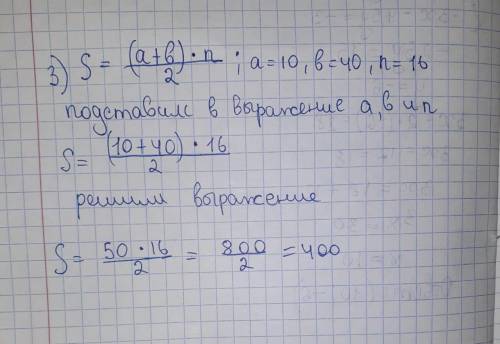 3) S = (a+b)·n / 2 ; a=10, b=40, n=16
подставим в выражение a, b и n
S = (10+40)·16 / 2
решим выражение
S = 50·16 / 2 = 800 / 2 = 400